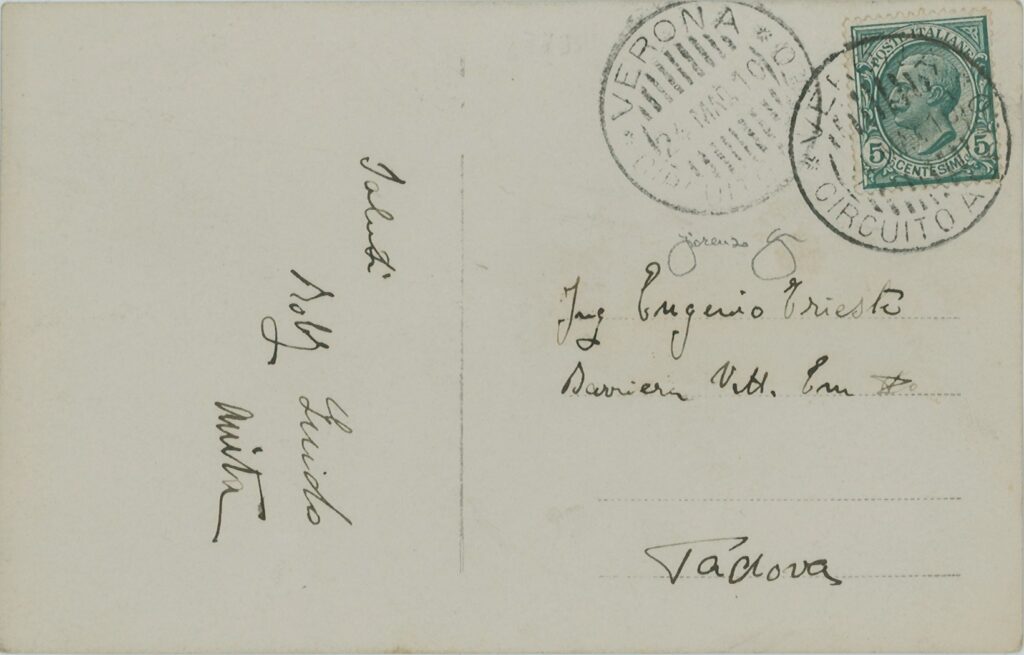 VERONA * 
24 MAR 10
POSTE ITALIANE
5 CENTESIMI 5
* CIRCUITO A
Saluti
Roby Guido
Anita
Ing Eugenio Trieste
Barriera Vitt. Em
Padova